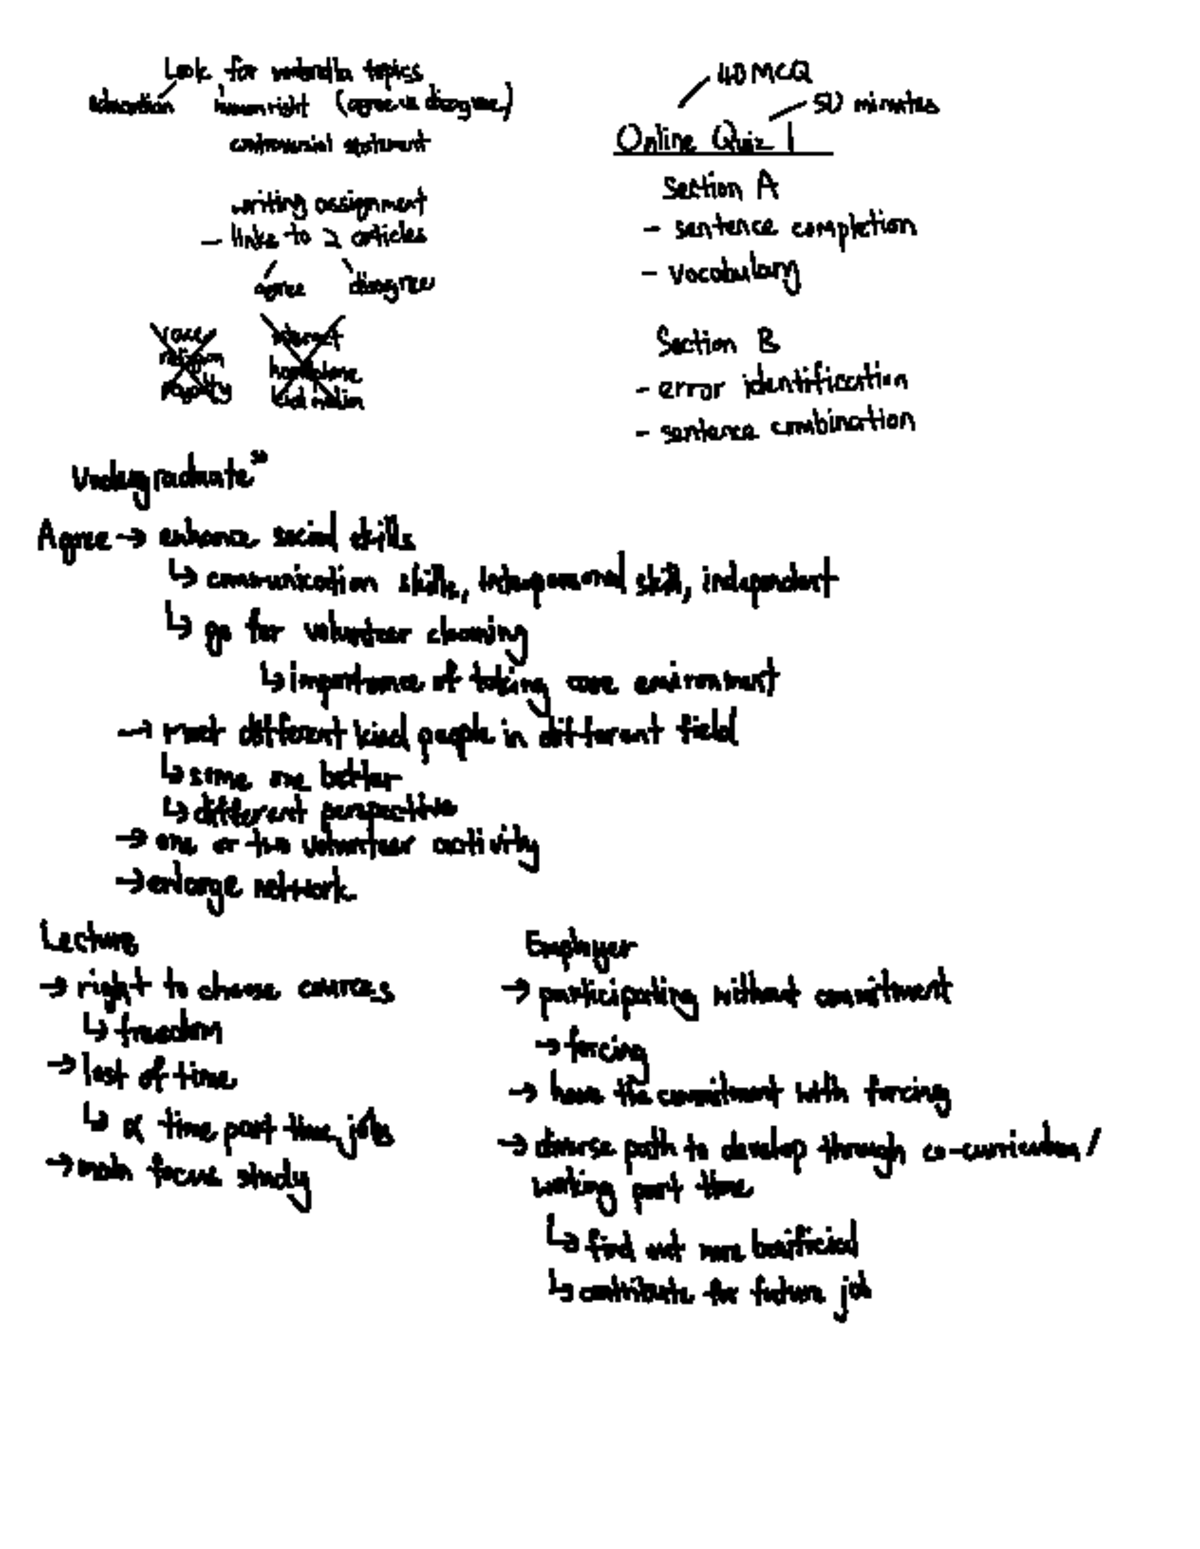 Look for umbrella topics
education human right (agree vs disagree)
controversial statement
writing assignment
- links to 2 articles
agree disagree
race
religion
royalty
internet
handphone
40 MCQ
50 minutes
Online Quiz 1
Section A
- sentence completion
- vocabulary
Section B
- error identification
- sentence combination
Undergraduate
Agree → enhance social skills
↳ communication skills, interpersonal skill, independent
↳ go for volunteer cleaning
↳ importance of taking care environment
→ meet different kind people in different field
↳ some are better
↳ different perspective
→ one or two volunteer activity
→ enlarge network
Lecture
→ right to choose courses
↳ freedom
→ lost of time
↳ time part time jobs
→ main focus study
Employer
→ participating without commitment
→ forcing
→ have the commitment with forcing
→ diverse path to develop through co-curriculum /
working part time
↳ find out more
↳ contribute for future job